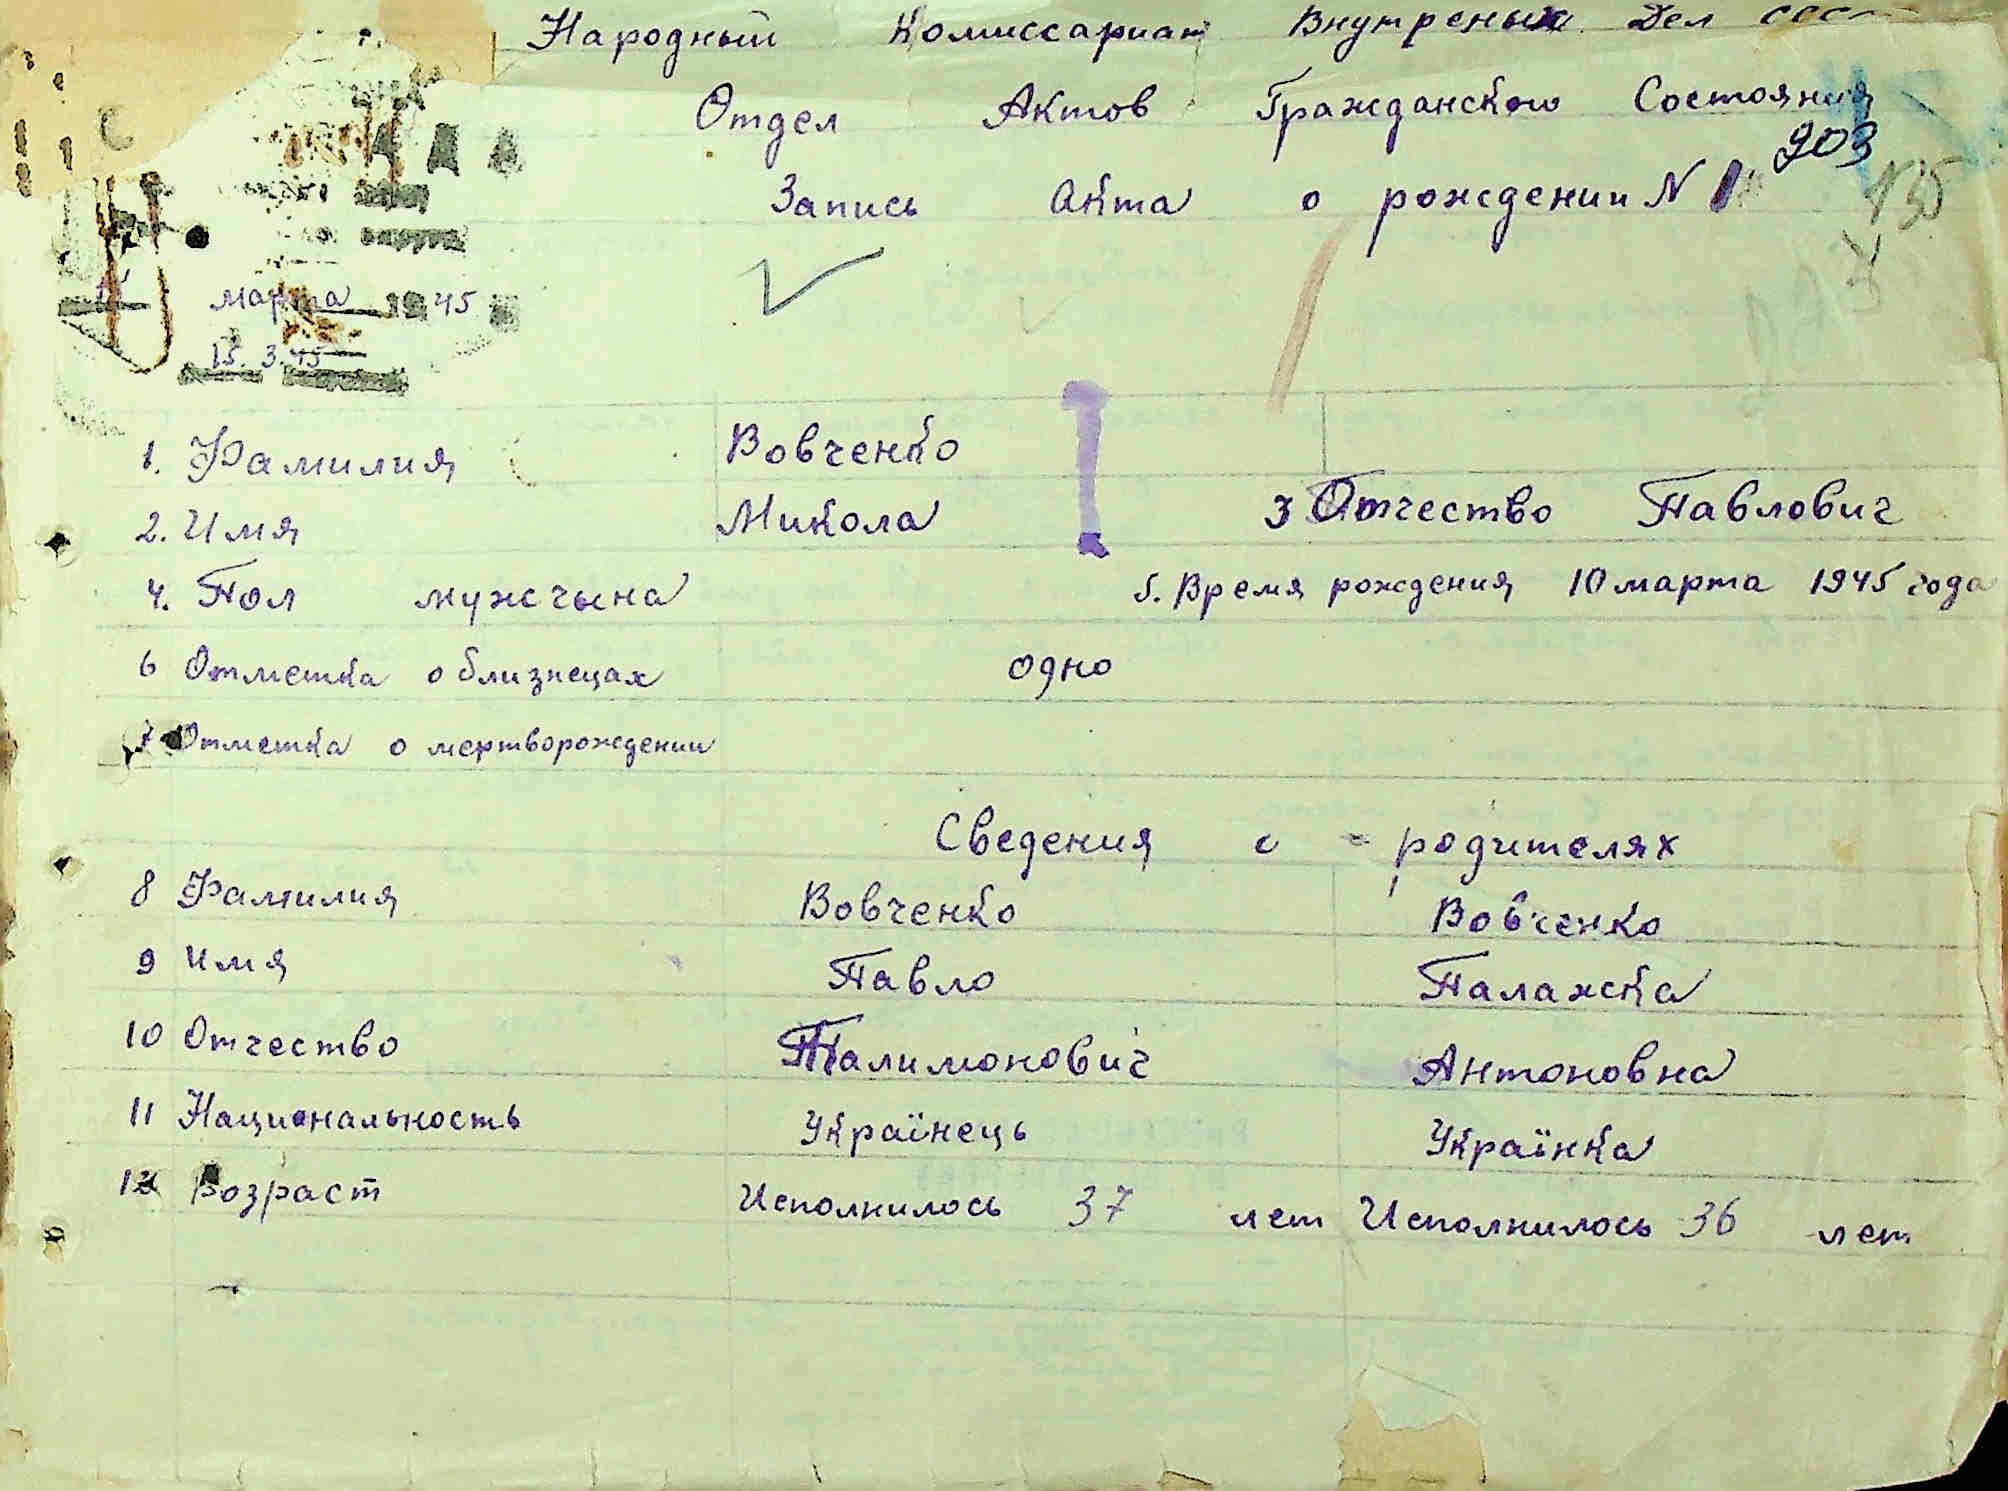 Народный Комиссариат Внутреных Дел ссс
Отдел Актов Гражданского Состояния
903
Запись Акта о рождении N 1
135
округа
марта 1945
15. 3. 45
1. Фамилия Вовченко
2. Имя Микола 3 Отчество Павлович
4. Пол мужчына 5. Время рождения 10 марта 1945 года
6 Отметка о близнецах одно
7 Отметка о мертворождении
Сведения о родителях
8 Фамилия Вовченко Вовченко
9 Имя Павло Палажка
10 Отчество Палимонович Антоновна
11 Национальность Українець Українка
12 Возраст Исполнилось 37 лет Исполнилось 36 лет